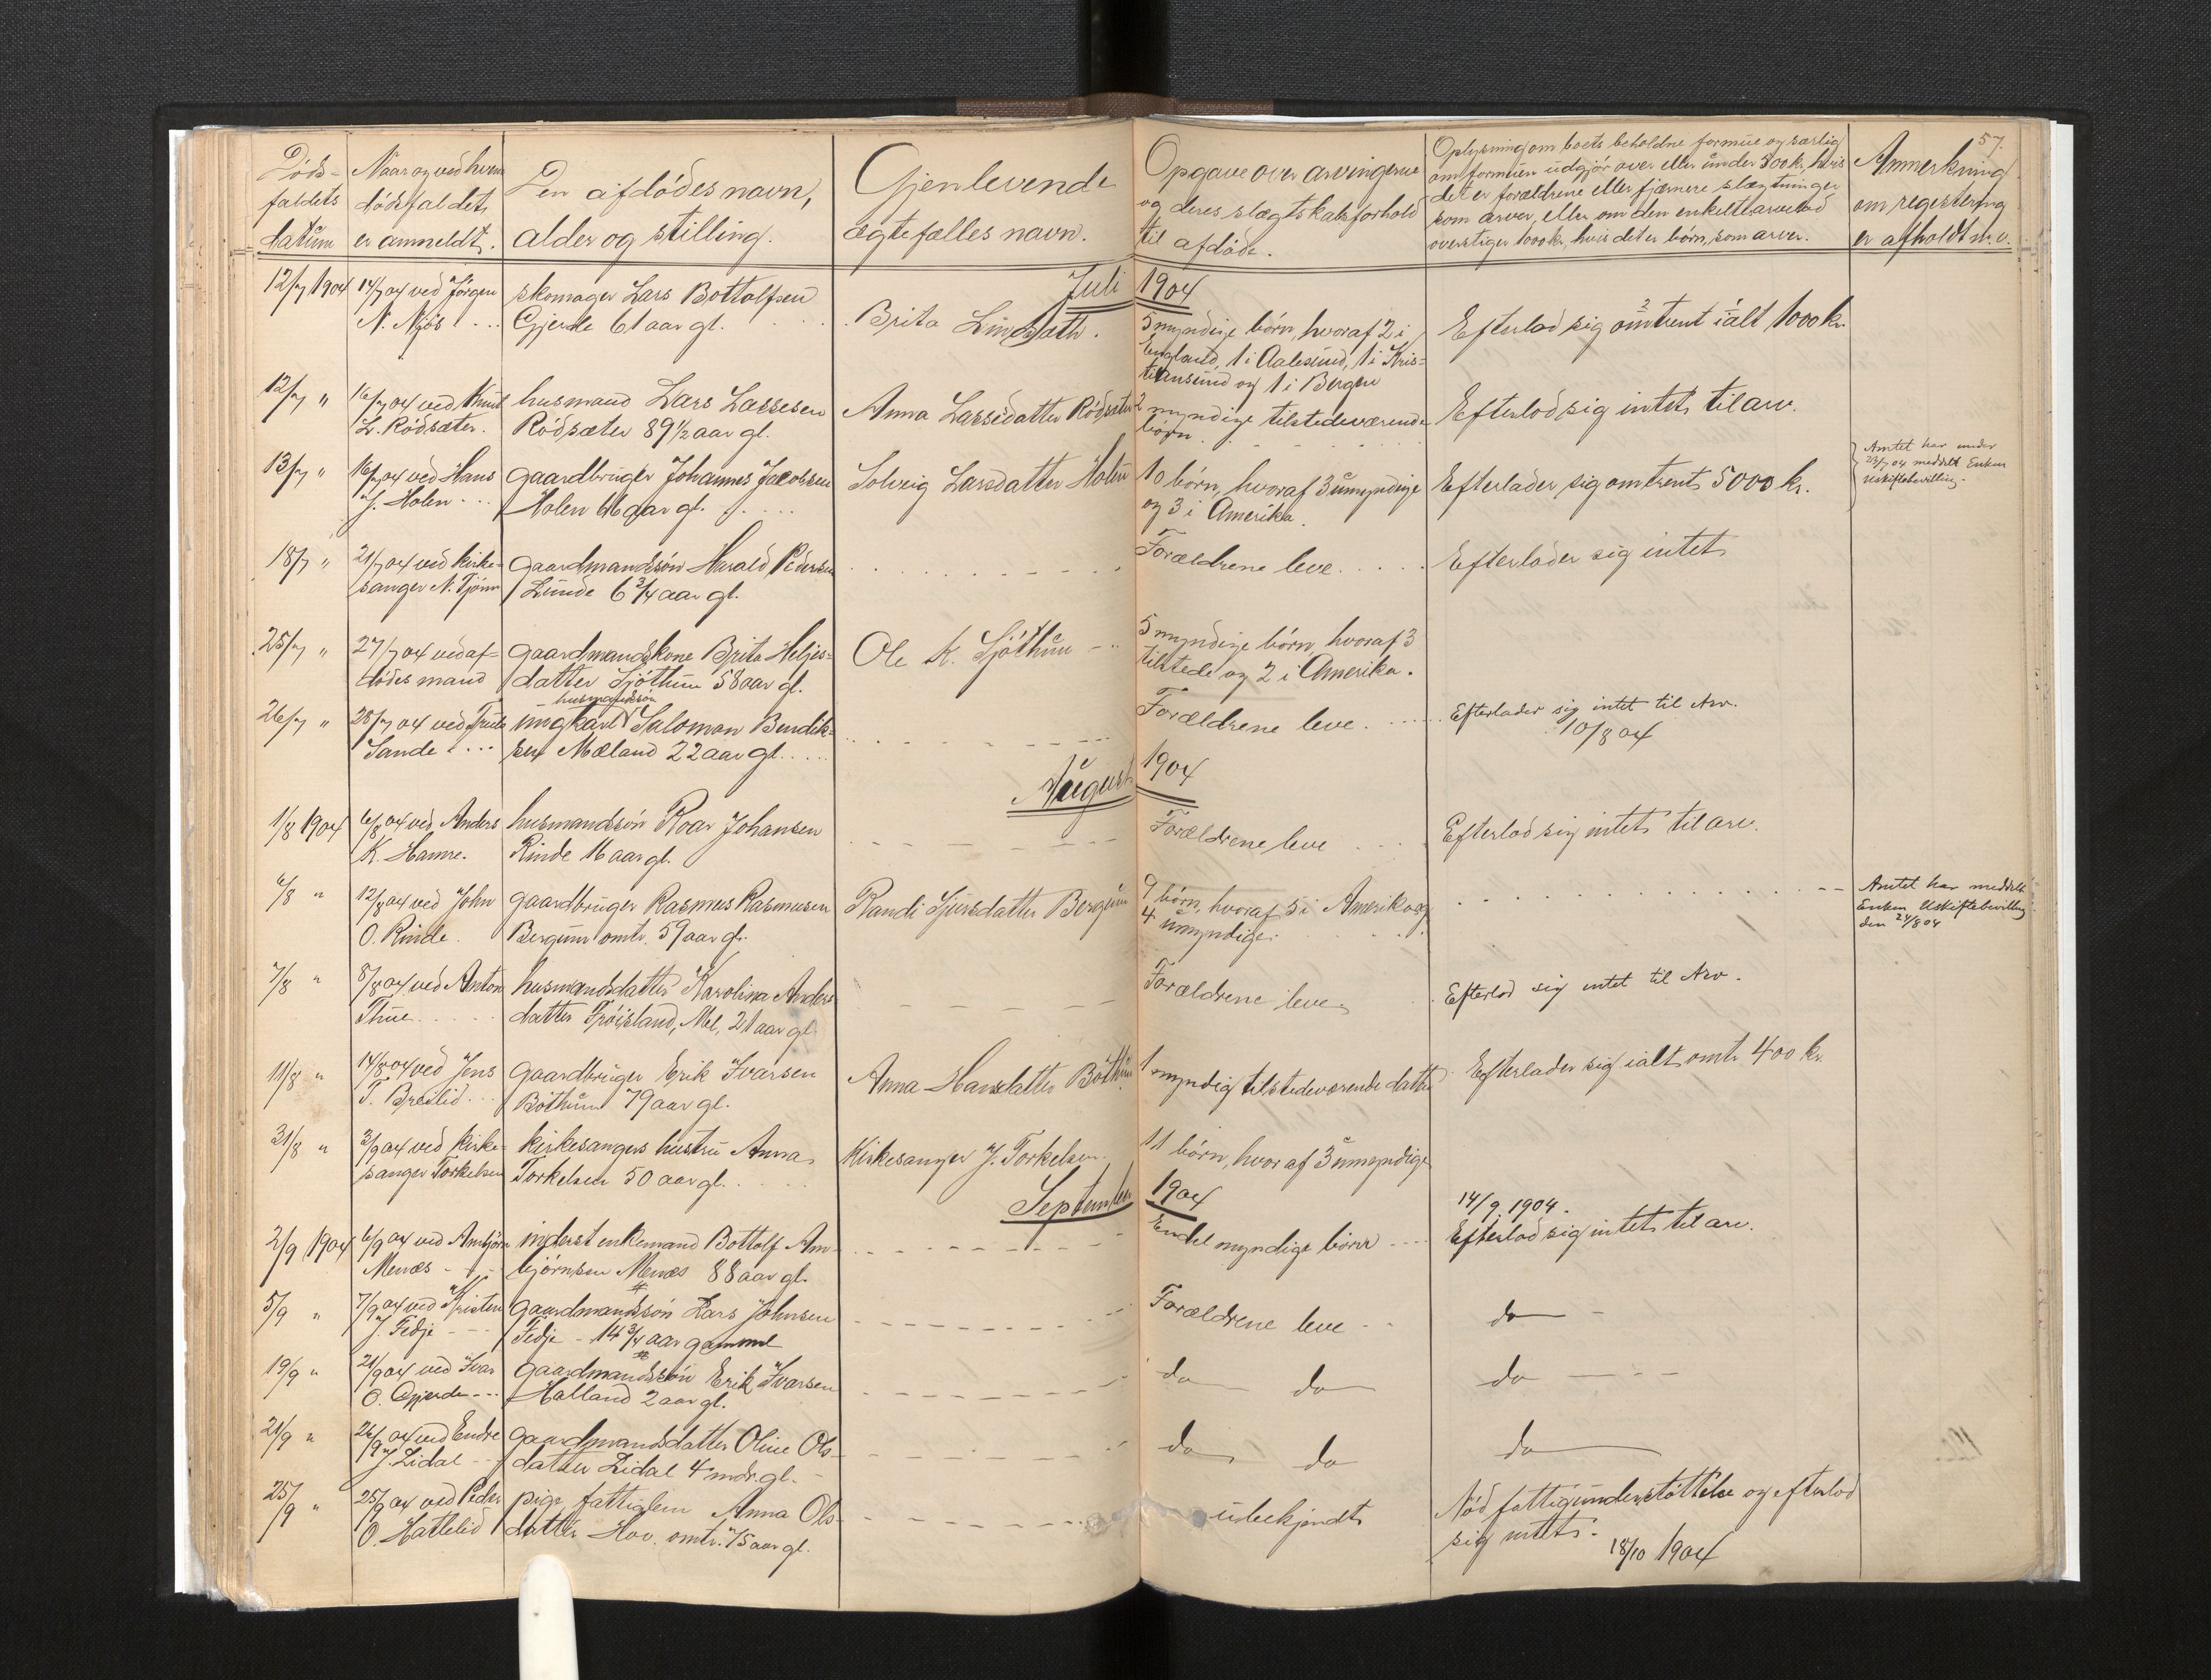 57.
Døds-
faldets
datum
Naar og ved hvem
dødsfaldet
er anmeldt.
Den afdødes navn,
alder og stilling.
Gjenlevende
ægtefælles navn.
Opgave over arvingerne
og deres slægtskabsforhold
til afdøde.
Oplysning om boets beholdne formue og særlig
om formuen udgjør over eller under 300 kr, hvis
det er forældrene eller fjærnere slægtninger
som arver, eller om den enkeltes arvelod
overstiger 1000 kr, hvis det er børn, som arver.
Anmerkning
om registering
er afholdt m.v.
Juli 1904
12/7 1904
14/7 04 ved Jörgen
N. Njøs
skomager Lars Bottolfsen
Gjerde 61 aar gl.
Brita
5 myndige børn, hvoraf 2 i
England, 1 i Aalesund, 1 i Kris-
tiansund og 1 i Bergen
Efterlod sig omtrent ialt 1000 kr.
12/7 "
16/7 04 ved Knut
L. Rödsæter.
husmand Lars Lassesen
Rödsæter 89 1/2 aar gl.
Anna Lassedatter Rödsæter
2 myndige tilstedeværende
børn.
Efterlod sig intet til arv.
13/7 "
16/7 04 ved Hans
J. Holen
gaardbruger Johannes Jacobsen
Holen 46 aar gl.
Solveig Larsdatter Holen
10 børn, hvoraf 3 umyndige
og 3 i Amerika.
Efterlader sig omtrent 5000 kr.
Amtet har under
23/7 04 meddelt Enken
Uskiftebevilling.
18/7 "
21/7 04 ved kirke-
sanger N. Tjönn
gaardmandssön Harald Pedersen
Lunde 6 3/4 aar gl.
Forældrene leve.
Efterlader sig intet
25/7 "
27/7 04 ved af-
dødes mand
gaardmandskone Brita Heljes-
datter Sjöthun 58 aar gl.
Ole K. Sjöthun
5 myndige børn, hvoraf 3
tilstede og 2 i Amerika.
26/7 "
28/7 04 ved Truls
Sande
husmandssön
ungkarl Salomon Bendik-
sen Mæland 22 aar gl.
Forældrene leve.
Efterlader sig intet til Arv.
10/8 04
August 1904
1/8 1904
6/8 04 ved Anders
K. Hamre.
husmandssön Roar Johansen
Rinde 16 aar gl.
Forældrene leve
Efterlod sig intet til arv.
6/8 "
12/8 04 ved John
O. Rinde.
gaardbruger Rasmus Rasmusen
Bergum omtr. 59 aar gl.
Randi Sjursdatter Bergum
9 børn, hvoraf 5 i Amerika og
4 umyndige.
Amtet har meddelt
Enken Uskiftebevilling
den 24/8 04
7/8 "
8/8 04 ved Anton
Thue
husmandsdatter Karolina Anders
datter Fröisland, Mel, 21 aar gl.
Forældrene leve
Efterlod sig intet til Arv.
11/8 "
14/8 04 ved Jens
T. Brælid
gaardbruger Erik Ivarsen
Böthun 79 aar gl.
Anna Hansdatter Böthun
1 myndig tilstedeværende datter
Efterlader sig ialt omtr 400 kr.
31/8 "
3/9 04 ved kirke-
sanger Torkelsen
kirkesangers hustru Anna
Torkelsen 50 aar gl.
Kirkesanger J. Torkelsen.
11 børn, hvoraf 3 umyndige
September 1904
14/9 1904.
2/9 1904
6/9 04 ved Ambjörn
Menæs
inderst enkemand Bottolf Am-
bjørnsen Menæs 88 aar gl.
Endel myndige børn
Efterlod sig intet til arv.
5/9 "
7/9 04 ved Kristen
J. Fedje
gaardmandssön Lars Johnsen
Fedje - 14 3/4 aar gammel
Forældrene leve
do
19/9 "
21/9 04 ved Ivar
O. Gjerde
gaardmandssön Erik Ivarsen
Halland 2 aar gl.
do do
do
21/9 "
26/9 04 ved Endre
J. Lidal
gaardmandsdatter Oline Ols-
datter Lidal 4 mdr. gl.
do do
do
25/9 "
25/9 04 ved Peder
O. Hattelid
pige, fattiglem Anna Ols-
datter Hov. omtr. 75 aar gl.
ubekjendt
Nød fattigunderstøttelse og efterlod
sig intet.
18/10 1904